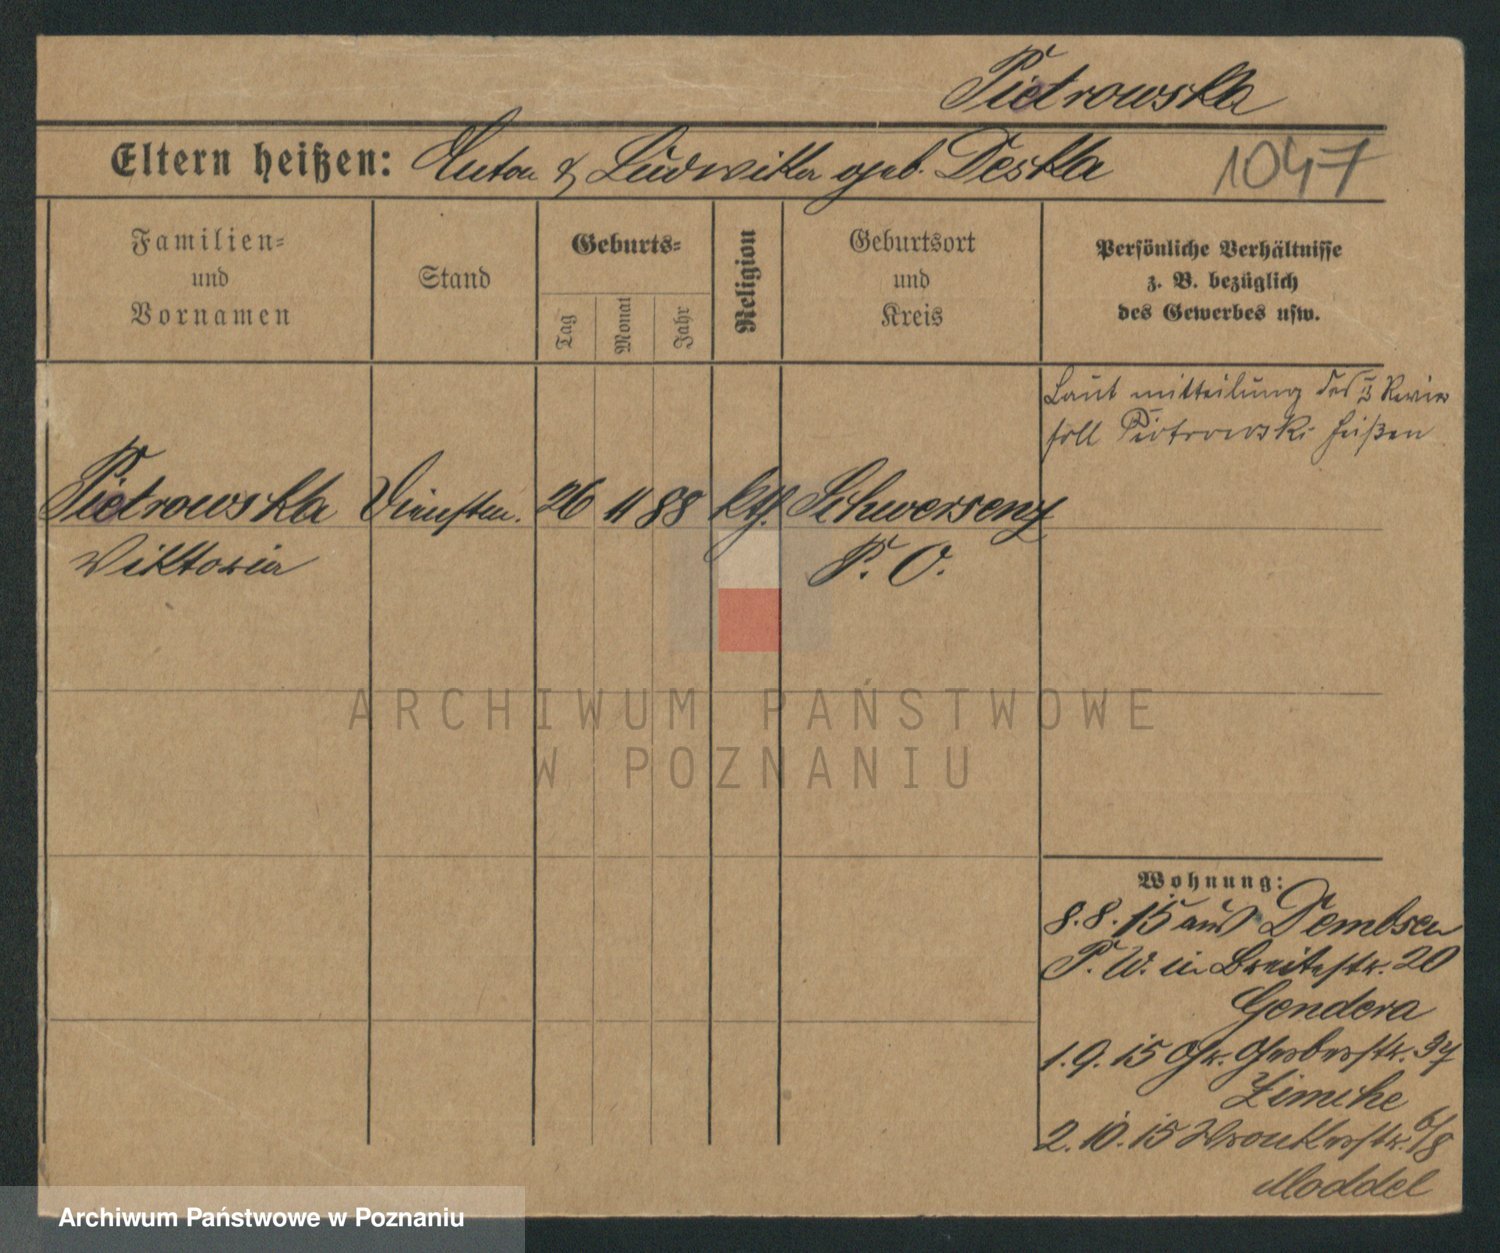 Pietrowska
Eltern heißen: Anton & Ludwika geb. Deska
1047
Familien-
und
Vornamen
Stand
Geburts-
Tag
Monat
Jahr
Religion
Geburtsort
und
Kreis
Persönliche Verhältnisse
z. B. bezüglich
des Gewerbes usw.
Laut mitteilung des II Revier
soll Piotrowski heißen
Pietrowska Dienstm. 26 11 88 kth. Schwersenz
Wiktoria P. O.
ARCHIWUM PAŃSTWOWE
W POZNANIU
Wohnung:
8.8.15 aus Dembsen
P. W. in Breitestr. 20
Gendera
1.9.15 Gr. Gerberstr. 37
Zimche
2.10.15 Wronkerstr. 6/8
Moddel
Archiwum Państwowe w Poznaniu